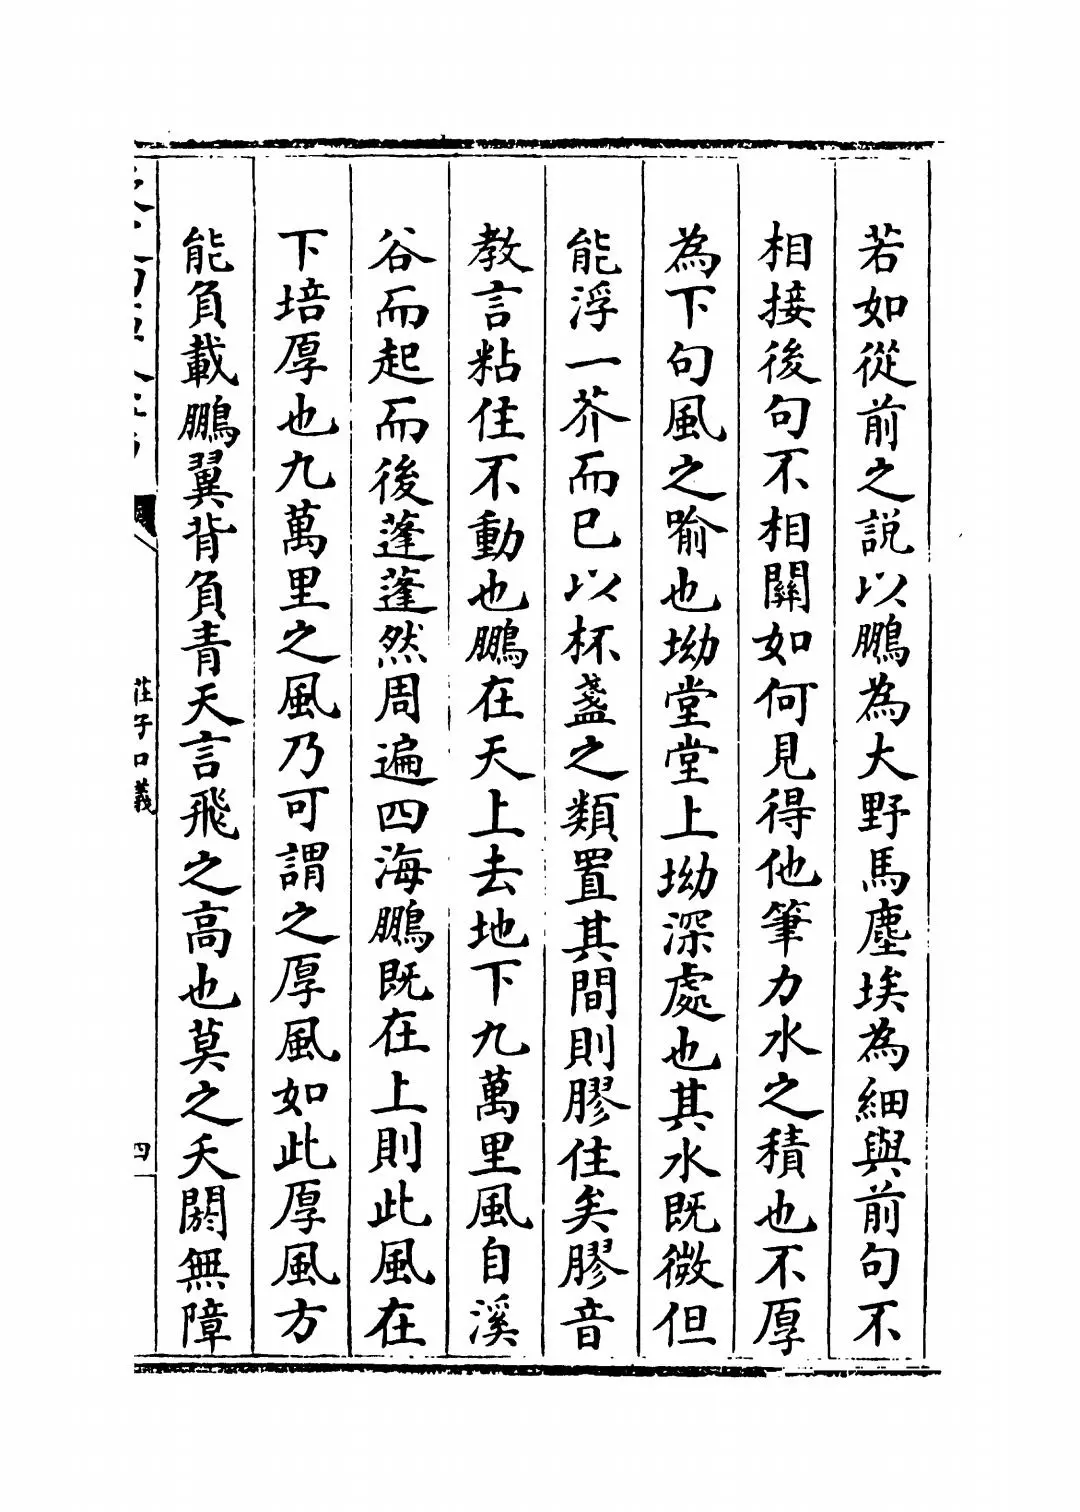 若如從前之說以鵬為大野馬塵埃為細與前句不
相接後句不相關如何見得他筆力水之積也不厚
為下句風之喻也坳堂堂上坳深處也其水既微但
能浮一芥而已以杯盞之類置其間則膠住矣膠音
教言粘住不動也鵬在天上去地下九萬里風自溪
谷而起而後蓬蓬然周遍四海鵬既在上則此風在
下培厚也九萬里之風乃可謂之厚風如此厚風方
能負載鵬翼背負青天言飛之高也莫之夭閼無障
莊子口義
四